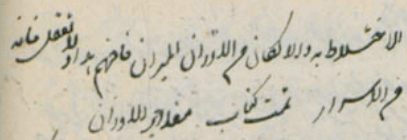 الاختلاط به والاكان من الاوزان الميزان فافهم هذا ولا تغفل فانه
من الاسرار تمت كتاب مقادير الاوزان